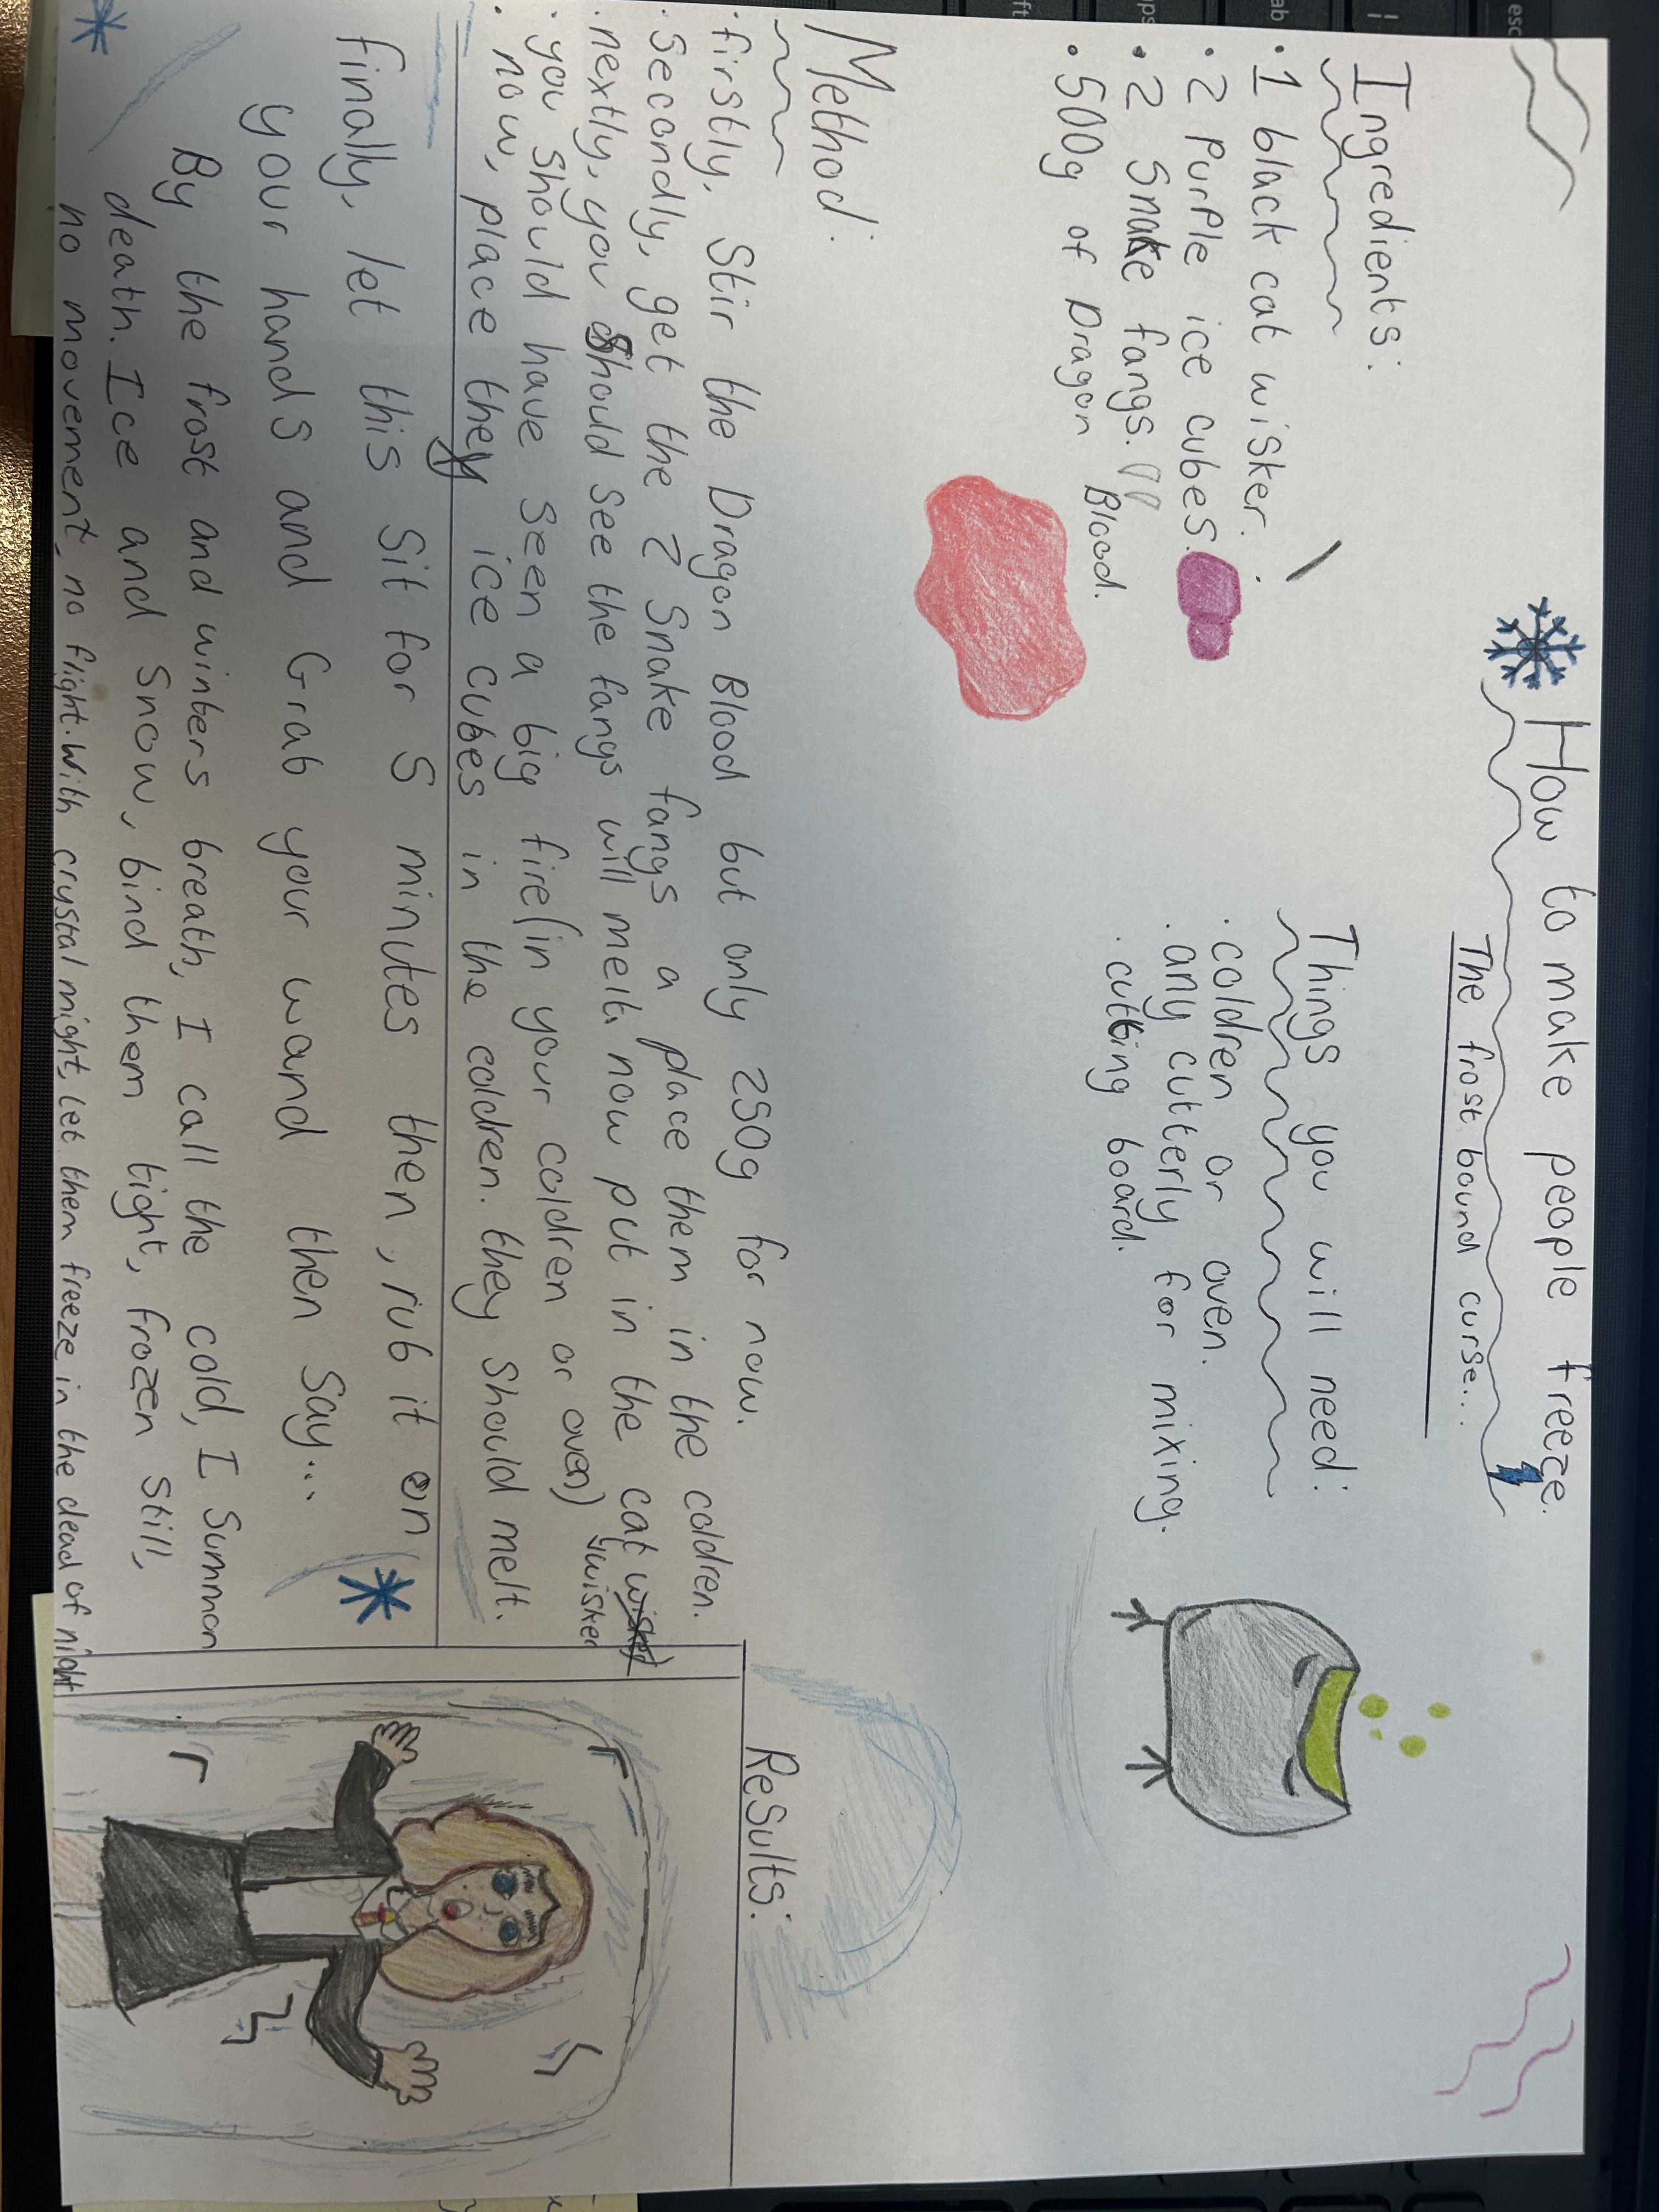 How to make people freeze.
The frost bound curse...
Ingredients:
• 1 black cat wisker.
• 2 purple ice cubes.
• 2 Snake fangs.
• 500g of Dragon Blood.
Things you will need:
• coldren or oven.
• any cutterly for mixing.
• cutting board.
Method:
• firstly, Stir the Dragon Blood but only 250g for now.
• Secondly, get the 2 Snake fangs a place them in the coldren.
• nextly, you should see the fangs will melt. now put in the cat wisker
• you should have seen a big fire (in your coldren or oven)
• now, place they ice cubes in the coldren. they should melt.
finally, let this sit for 5 minutes then, rub it on
your hands and Grab your wand then say...
By the frost and winters breath, I call the cold, I summon
death. Ice and snow, bind them tight, frozen still,
no movement, no flight. with crystal might, let them freeze in the dead of night
Results:
esc
ab
ps
ft